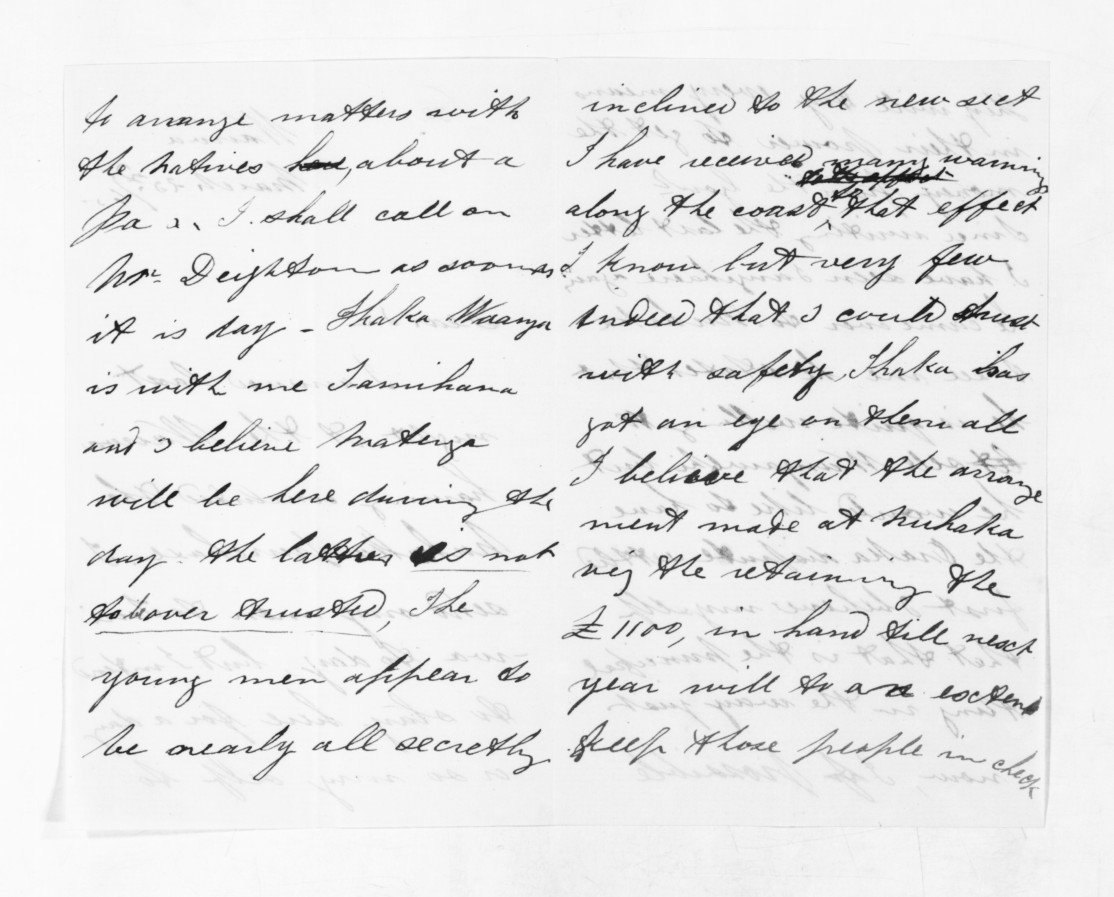 to arrange matters with
the natives here, about a
Pa &, I shall call on
Mr. Deighton as soon as
it is day - Ihaka Waanga
is with me Tamihana
and I believe Matenga
will be here during the
day. the latter is not
to be over trusted, The
young men appear to
be nearly all secretly
inclined to the new sect
I have received many warnings
along the coast to that effect
I know but very few
indeed that I could trust
with safety, Ihaka has
got an eye on them all
I believe that the arrange
ment made at Nuhaka
viz the retaining the
£1100, in hand till next
year will to an extent
keep those people in check